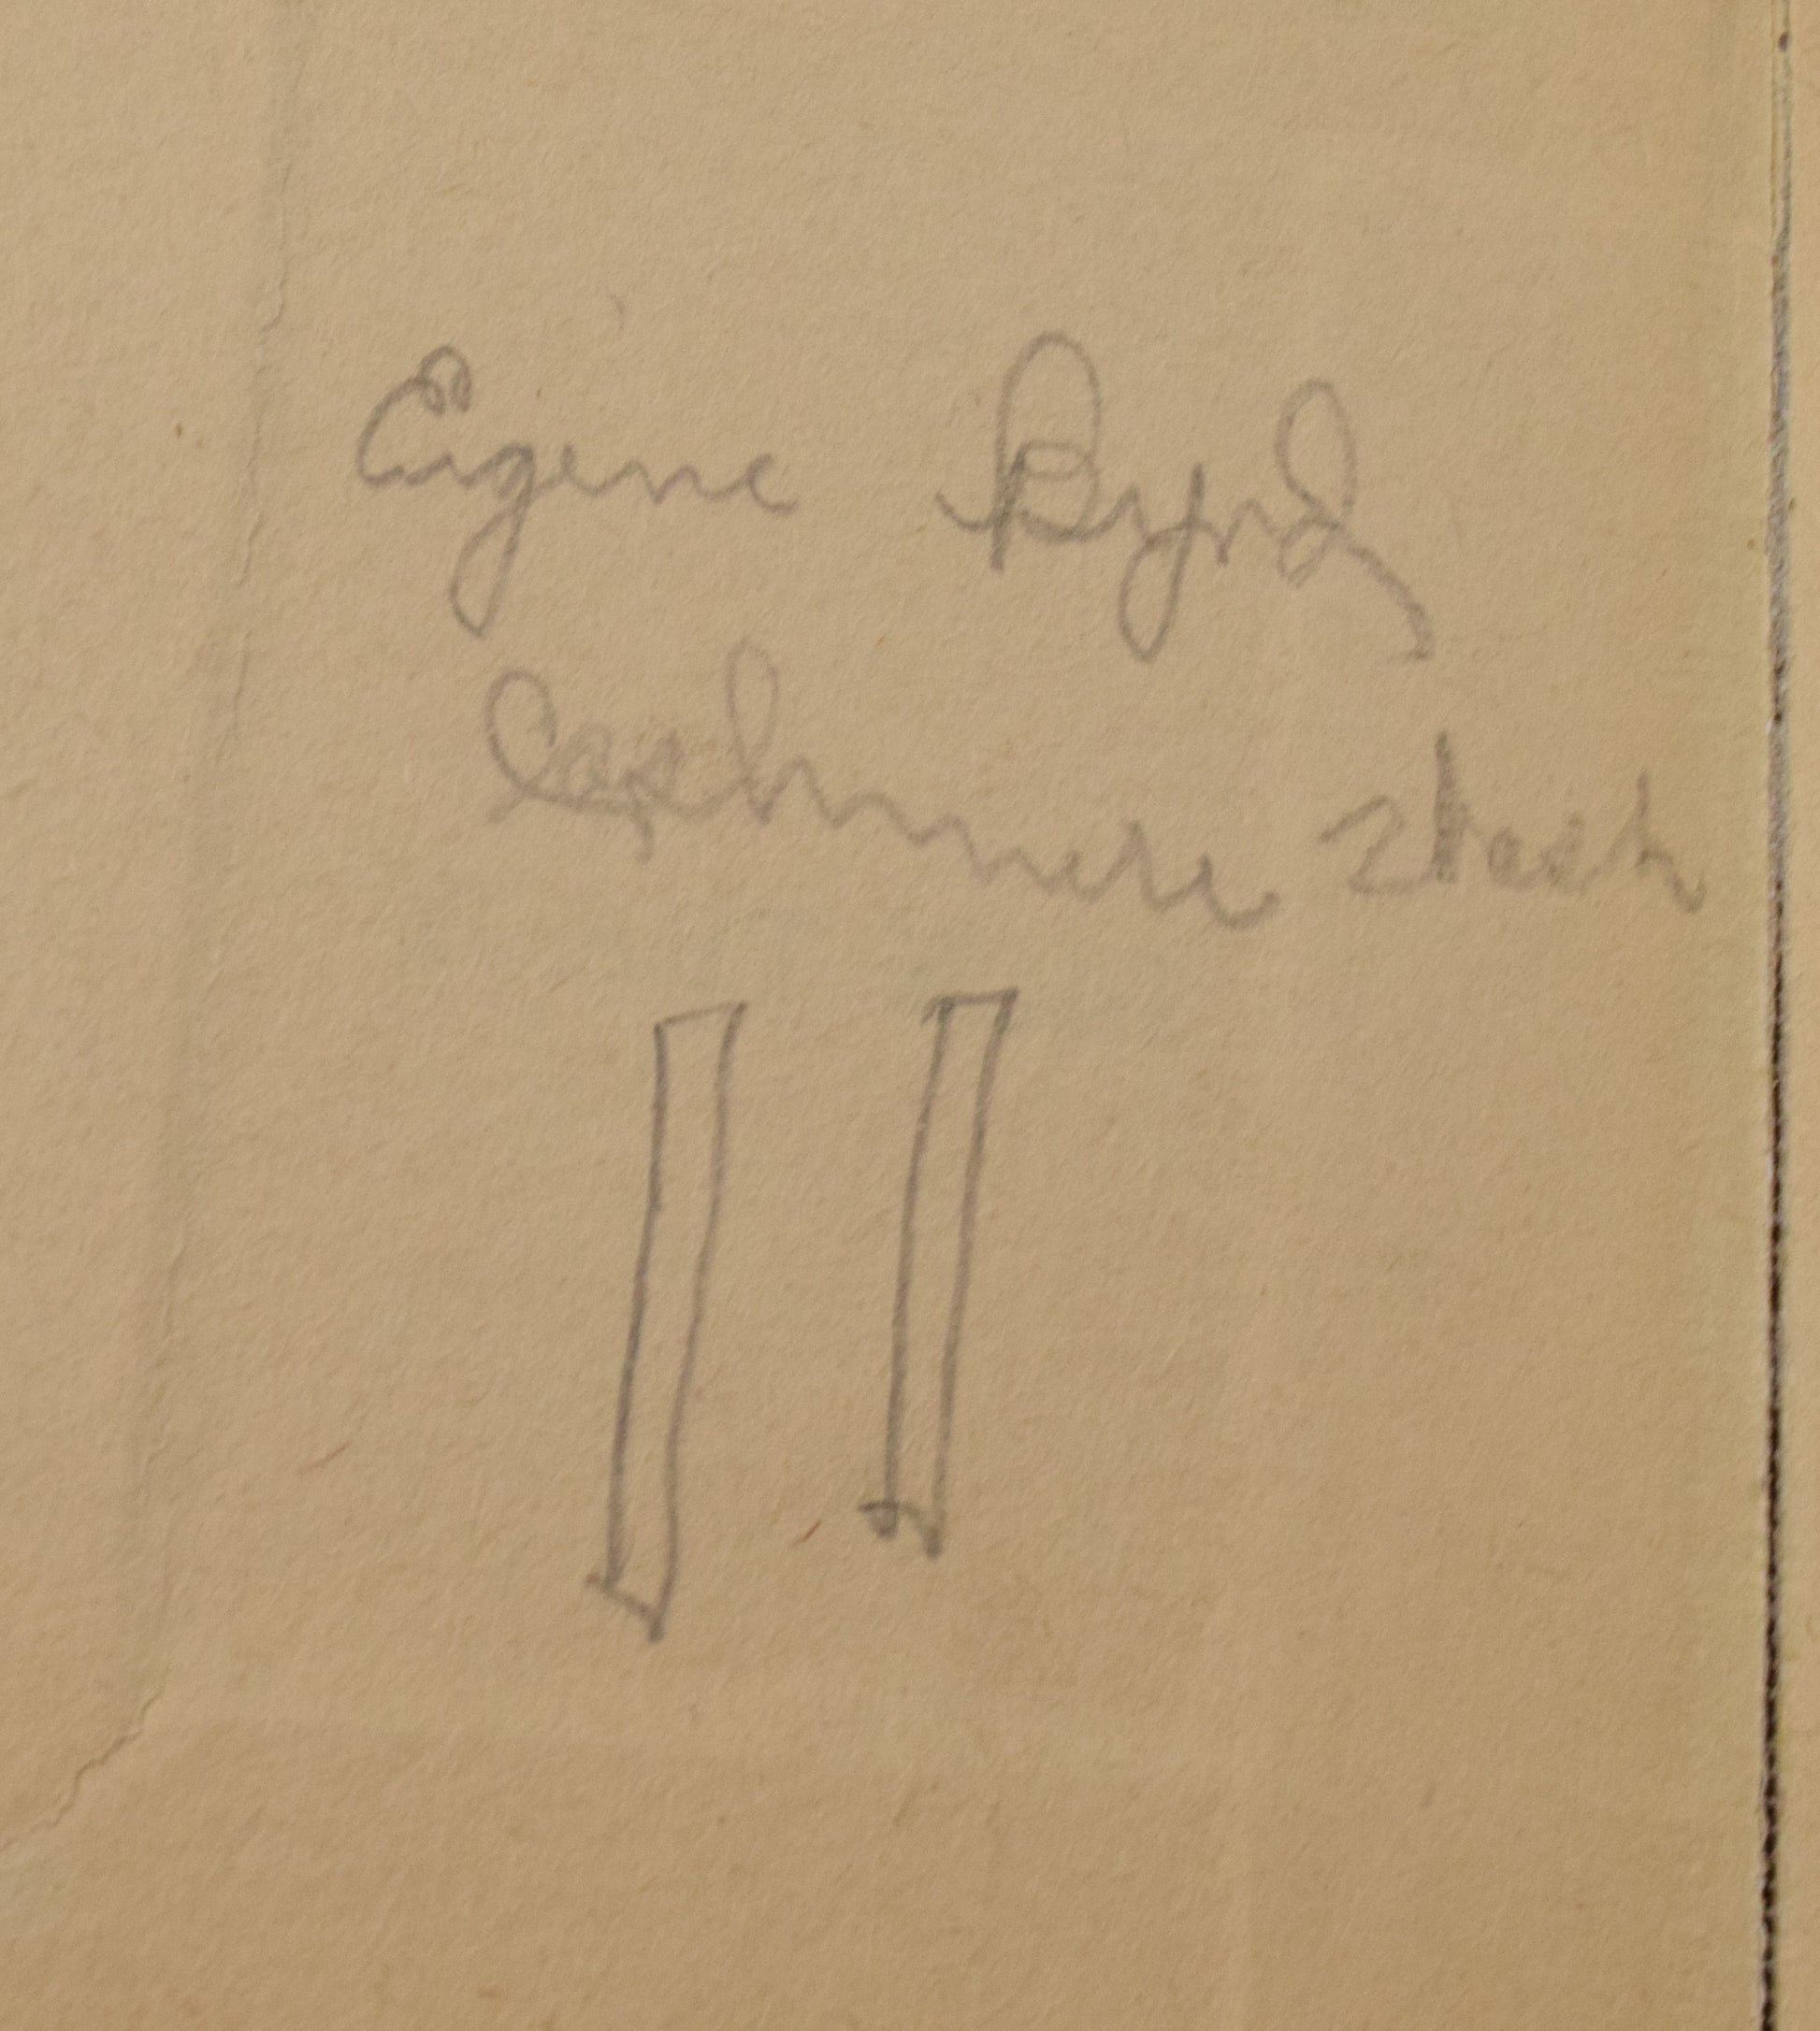 Eugene Byrd
Cashmere Wash